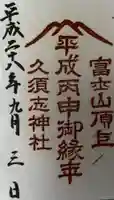 富士山頂上
平成丙申御縁年
久須志神社
平成二八年九月三日